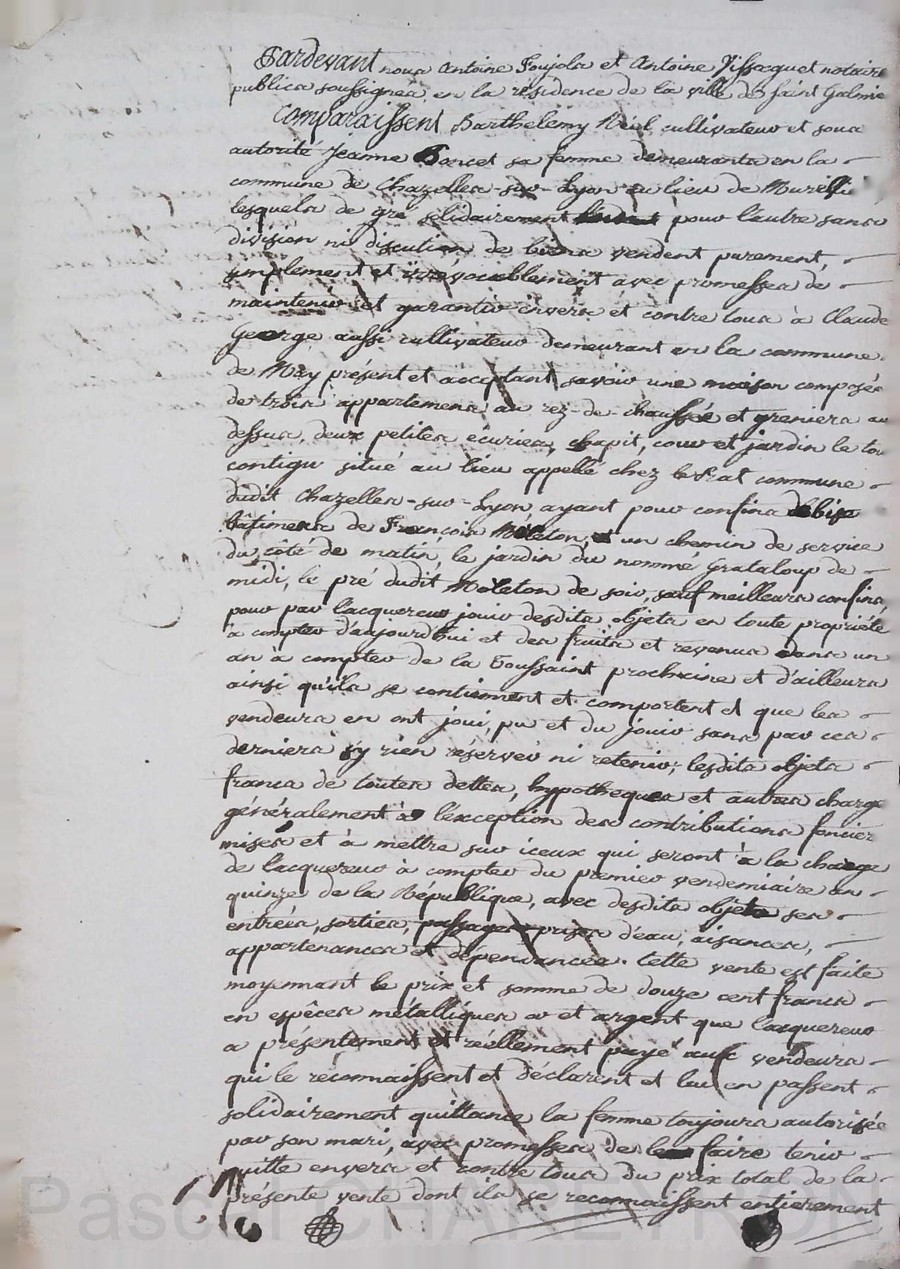 Pardevant nous Antoine Foujols et Antoine Vissaguet notaire
publics soussignés, en la résidence de la ville de Saint Galmie
Comparaissent Barthelemy Réol cultivateur et sous
autorité Jeanne Poncet sa femme demeurants en la
commune de Chazelles-sur-Lyon au lieu de
lesquels de gré solidairement pour l'autre sans
division ni discution de biens vendent purement,
simplement et irrévocablement avec promesses de
maintenir et garantir envers et contre tous à Claude
George aussi cultivateur demeurant en la commune
de présent et acceptant savoir une maison composée
de trois appartemens au rez-de-chaussée et greniers au
dessus, deux petites écuries, chapit, cour et jardin le tou
contigu situé au lieu appellé chez le Rat commune
dudit Chazelles-sur-Lyon, ayant pour confins de bise
bâtimens de François Moleton, et un chemin de service
du côté de matin, le jardin du nommé Grataloup de
midi, le pré dudit Moleton de soir, sauf meilleurs confins,
pour par l'acquereur jouir desdits objets en toute propriété
à compter d'aujourd'hui et des fruits et revenus dans un
an à compter de la Toussaint prochaine et d'ailleurs
ainsi qu'ils se contiennent et comportent et que les
vendeurs en ont joui, pu et du jouir sans par ces
derniers s'y rien réserver ni retenir; lesdits objets
francs de toutes dettes, hypotheques et autres charge
généralement à l'exception des contributions foncier
mises et à mettre sur iceux qui seront à la charge
de l'acquereur à compter du premier vendemiaire an
quinze de la République, avec desdits objets ses
entrées, sorties, passages prises d'eau, aisances,
appartenances et dépendances. Cette vente est faite
moyennant le prix et somme de douze cent francs
en espèces métalliques or et argent que l'acquereur
a présentement et réellement payé aux vendeurs
qui le reconnaissent et déclarent et lui en passent
solidairement quittance la femme toujours autorisée
par son mari, avec promesses de faire tenir
quitte envers et contre tous du prix total de la
présente vente dont ils se reconnaissent entierement
Pascal CHARETRON